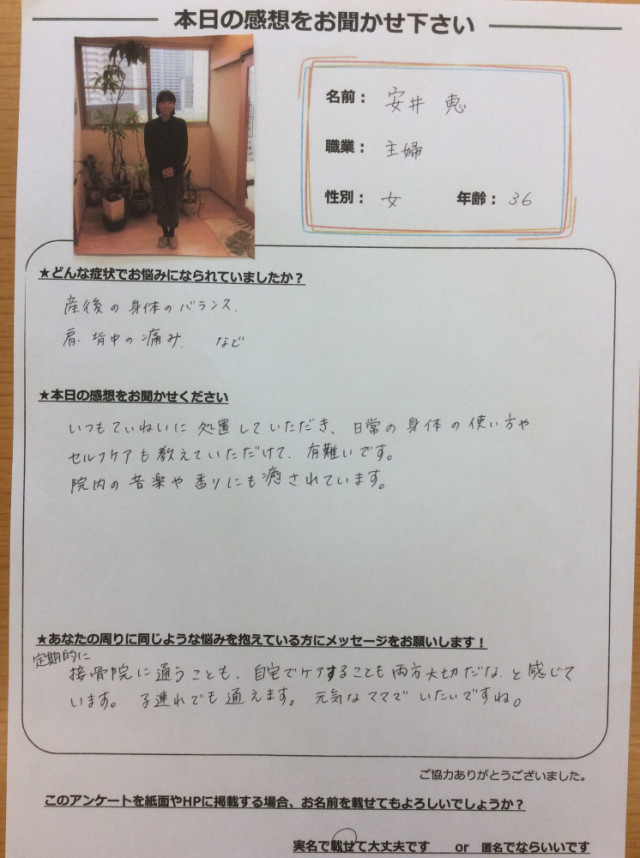 本日の感想をお聞かせ下さい
名前： 安井 恵
職業： 主婦
性別： 女 年齢： 36
★どんな症状でお悩みになられていましたか？
産後の身体のバランス.
肩、背中の痛み. など
★本日の感想をお聞かせください
いつもていねいに処置していただき、日常の身体の使い方や
セルフケアも教えていただけて、有難いです。
院内の音楽や香りにも癒されています。
★あなたの周りに同じような悩みを抱えている方にメッセージをお願いします！
定期的に
接骨院に通うことも、自宅でケアすることも両方大切だな、と感じて
います。子連れでも通えます。元気なママでいたいですね。
ご協力ありがとうございました。
このアンケートを紙面やHPに掲載する場合、お名前を載せてもよろしいでしょうか？
実名で載せて大丈夫です or 匿名でならいいです